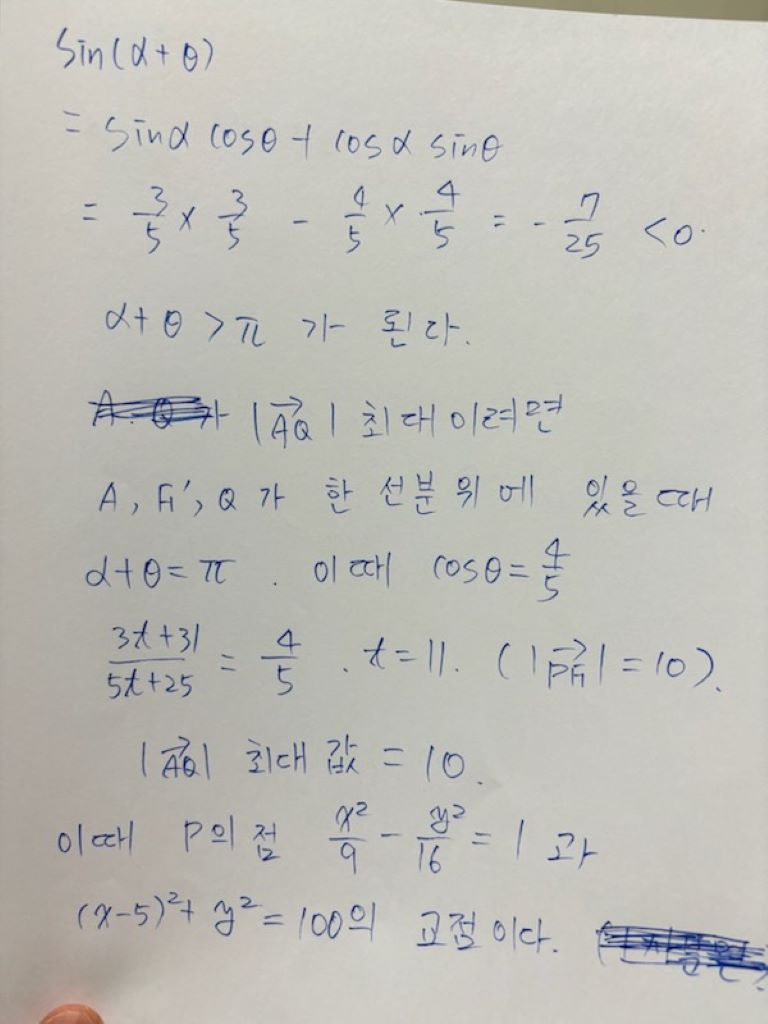 sin(α+θ)
= sinα cosθ + cosα sinθ
= 3/5 × 3/5 - 4/5 × 4/5 = - 7/25 <0.
α+θ >π 가 된다.
|AQ→| 최대이려면
A, F₁', Q 가 한 선분 위에 있을 때
α+θ=π . 이때 cosθ= 4/5
(3t+31)/(5t+25) = 4/5 . t=11. (|PF₁→|=10).
|AQ→| 최대값 = 10.
이때 P의 점 x²/9 - y²/16 = 1 과
(x-5)²+ y²=100의 교점이다.